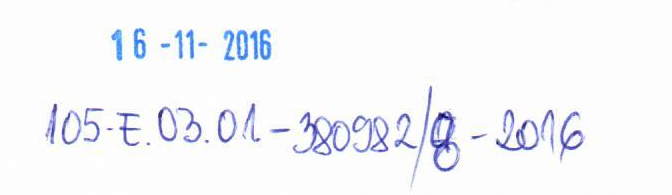 16 -11- 2016
105-E.03.01-380982/8-2016